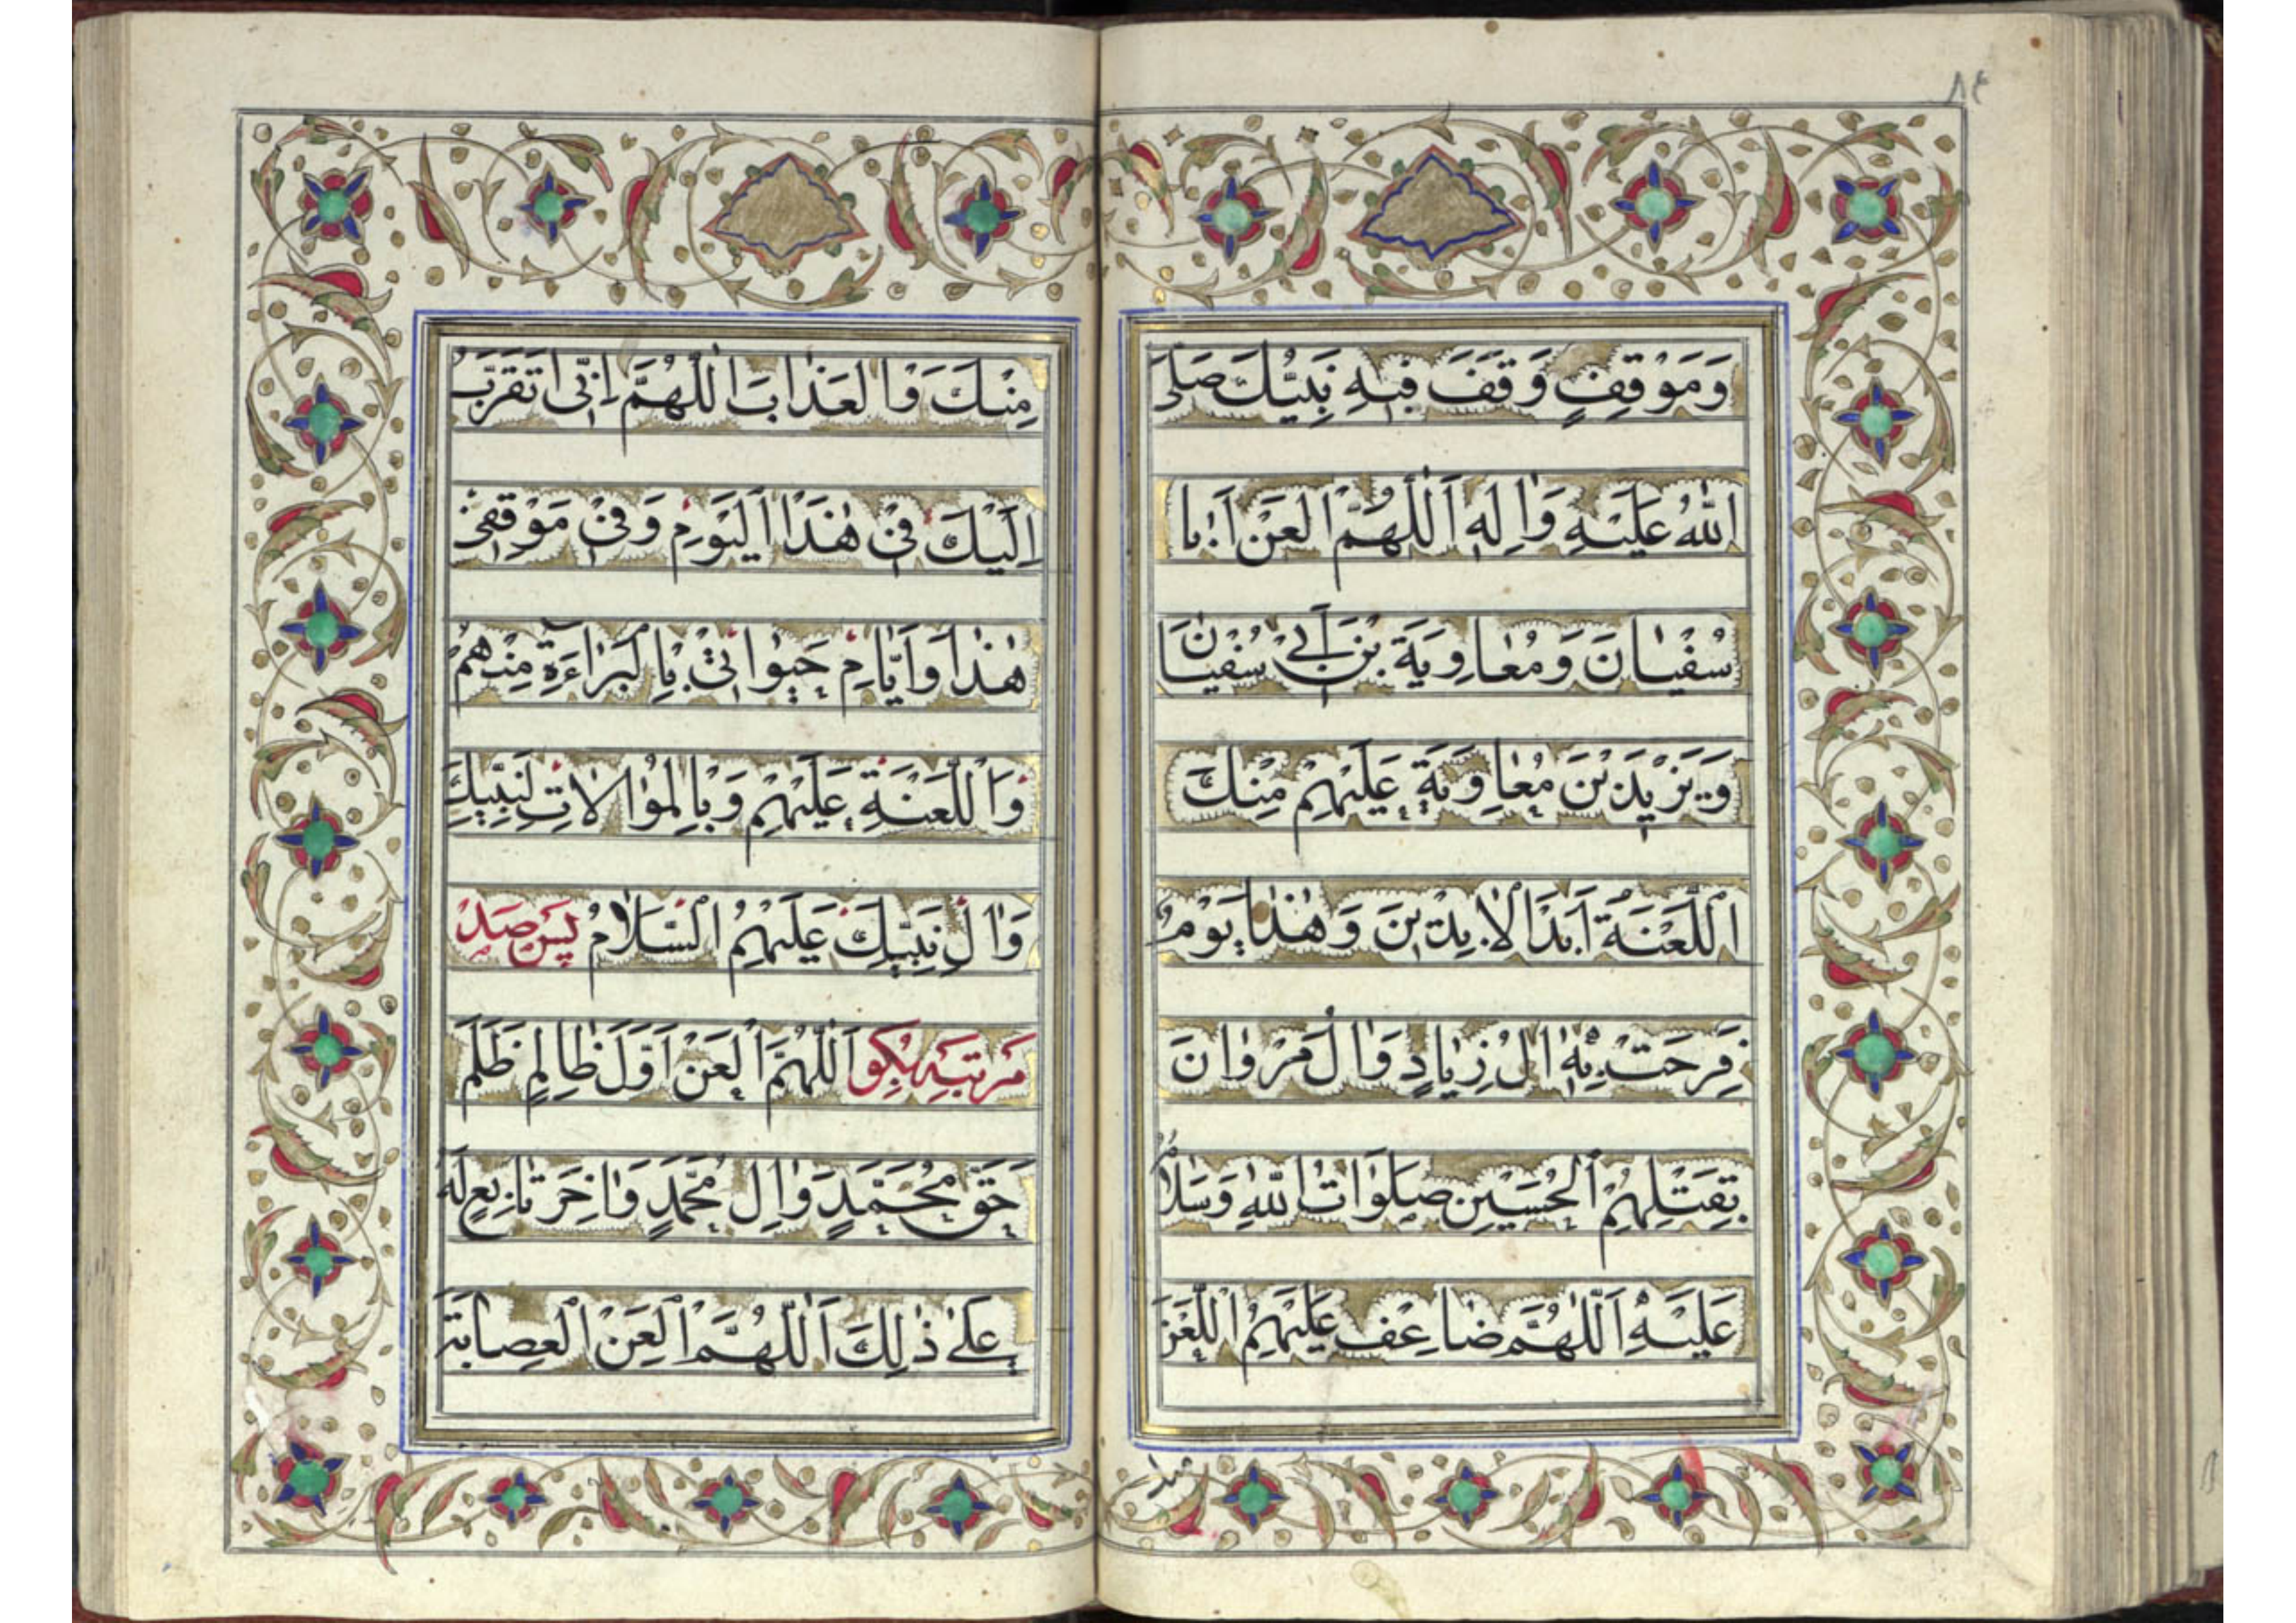 ٨٤
وَمَوْقِفٍ وَقَفَ فيهِ نَبِيُّكَ صَلَّى
اللهُ عَلَيْهِ وَاٰلِهِ اَللّٰهُمَّ الْعَنْ اَبا
سُفْيانَ وَمُعاوِيَةَ بْنَ اَبي سُفْيانَ
وَيَزيدَ بْنَ مُعاوِيَةَ عَلَيْهِمْ مِنْكَ
اللَّعْنَةُ اَبَدَ الْاٰبِدينَ وَهٰذا يَوْمٌ
فَرِحَتْ بِهِ اٰلُ زِيادٍ وَاٰلُ مَرْوانَ
بِقَتْلِهِمُ الْحُسَيْنَ صَلَواتُ اللهِ وَسَلامُ
عَلَيْهِ اَللّٰهُمَّ ضاعِفْ عَلَيْهِمُ اللَّعْنَ
منك
مِنْكَ وَالْعَذابَ اَللّٰهُمَّ اِنّي اَتَقَرَّبُ
اِلَيْكَ في هٰذَا الْيَوْمِ وَفي مَوْقِفي
هٰذا وَاَيّامِ حَيٰوتي بِالْبَراءَةِ مِنْهُمْ
وَاللَّعْنَةِ عَلَيْهِمْ وَبِالْمُوالاتِ لِنَبِيِّكَ
وَاٰلِ نَبِيِّكَ عَلَيْهِمُ السَّلامُ پس صد
مرتبه بگو اَللّٰهُمَّ الْعَنْ اَوَّلَ ظالِمٍ ظَلَمَ
حَقَّ مُحَمَّدٍ وَاٰلِ مُحَمَّدٍ وَاٰخِرَ تابِعٍ لَهُ
عَلىٰ ذٰلِكَ اَللّٰهُمَّ الْعَنِ الْعِصابَةَ